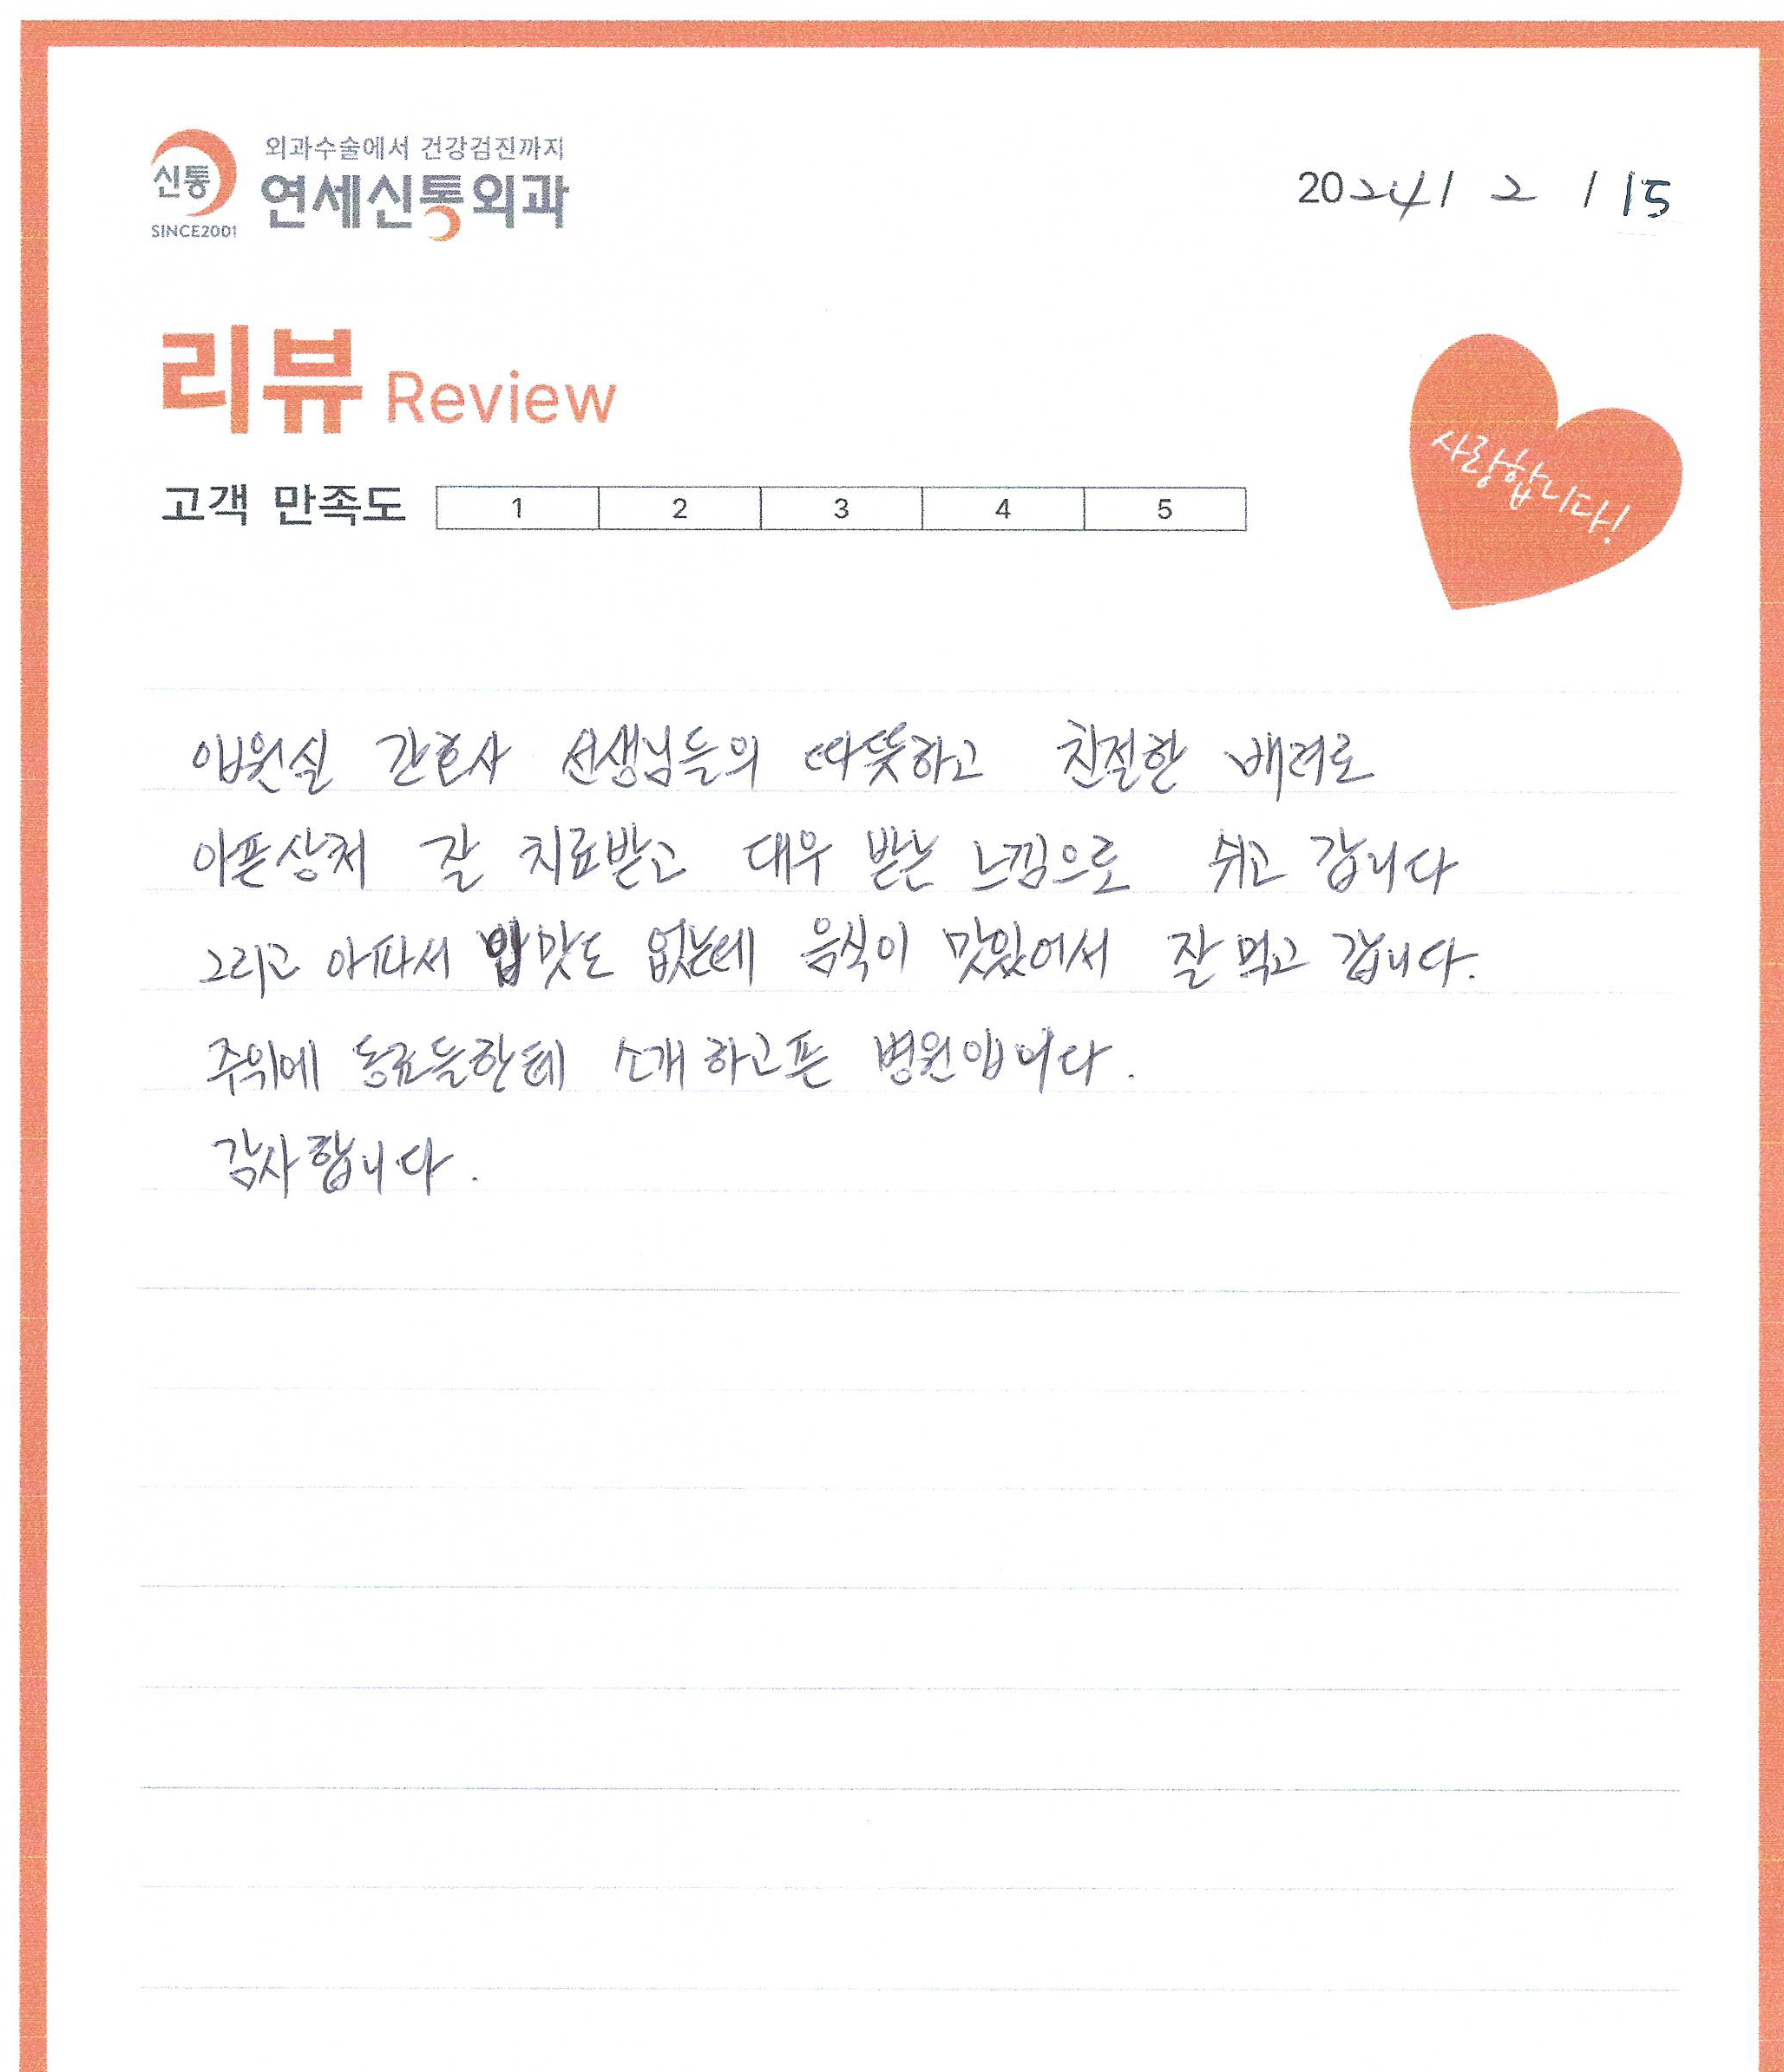 외과수술에서 건강검진까지
신통 연세신통외과
SINCE2001
2024 / 2 / 15
리뷰 Review
사랑합니다!
고객 만족도 1 2 3 4 5
입원실 간호사 선생님들의 따뜻하고 친절한 배려로
아픈상처 잘 치료받고 대우 받는 느낌으로 쉬고 갑니다
그리고 아파서 입맛도 없는데 음식이 맛있어서 잘 먹고 갑니다.
주위에 동료들한테 소개하고픈 병원입니다.
감사합니다.